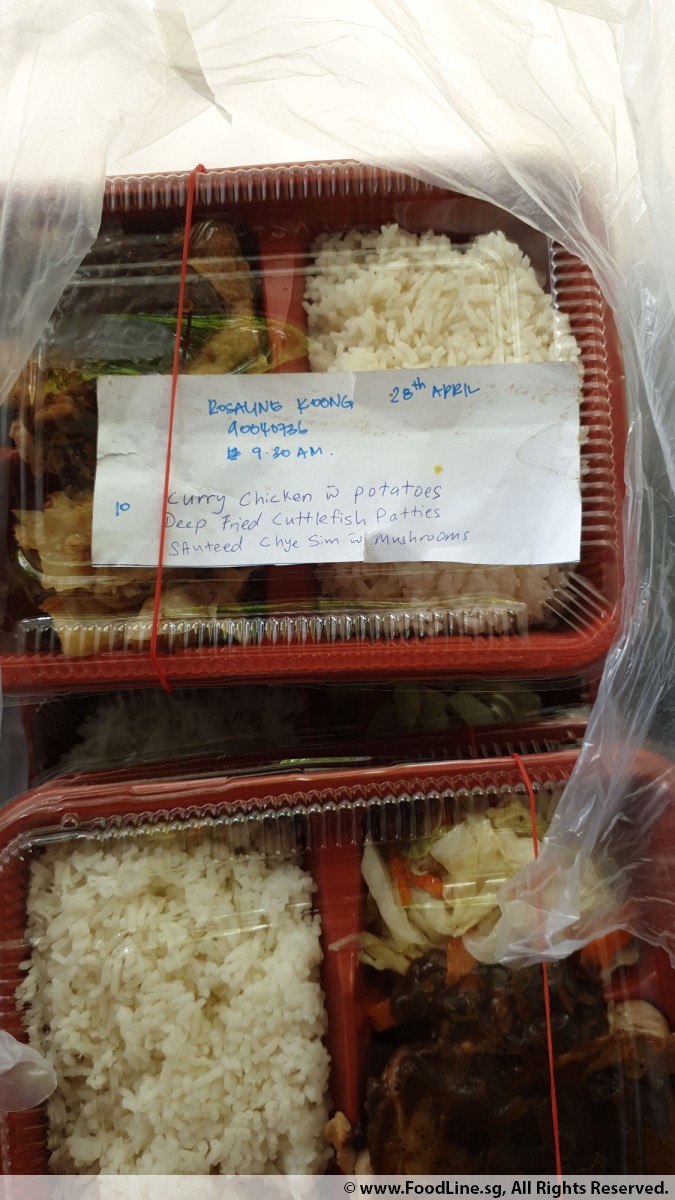 ROSALINE KOONG 28th APRIL
90040736
9.30 AM.
10
Curry Chicken w potatoes
Deep Fried Cuttlefish Patties
SAuteed Chye Sim w mushrooms
© www.FoodLine.sg, All Rights Reserved.